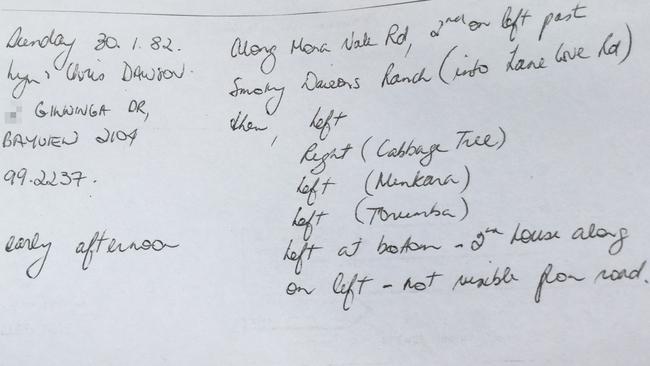 Sunday 30.1.82.
Lyn & Chris DAWSON.
GINNINGA DR,
BAYVIEW 2104
99.2237.
early afternoon
Along Mona Vale Rd, 2nd on left past
Smoky Dawsons Ranch (into Lane Cove Rd)
then, Left
Right (Cabbage Tree)
Left (Minkara)
Left (Torumba)
Left at bottom - 2nd house along
on left - not visible from road.